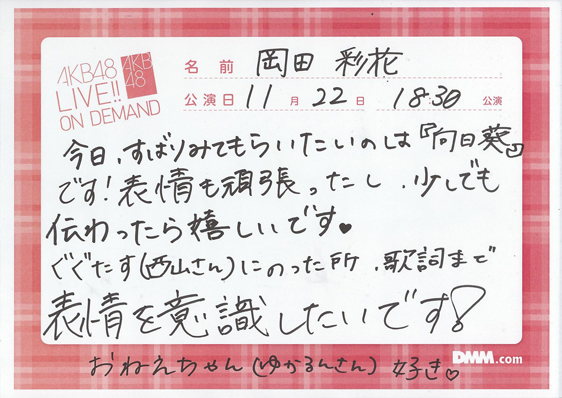 AKB48
LIVE!!
ON DEMAND
AKB
48
名前 岡田 彩花
公演日 11月 22日 18:30 公演
今日、ずばりみてもらいたいのは『向日葵』
です!表情も頑張ったし、少しでも
伝わったら嬉しいです♥
ぐぐたす(西山さん)にのった所、歌詞まで
表情を意識したいです!
おねえちゃん(ゆかるんさん) 好き♡
DMM.com